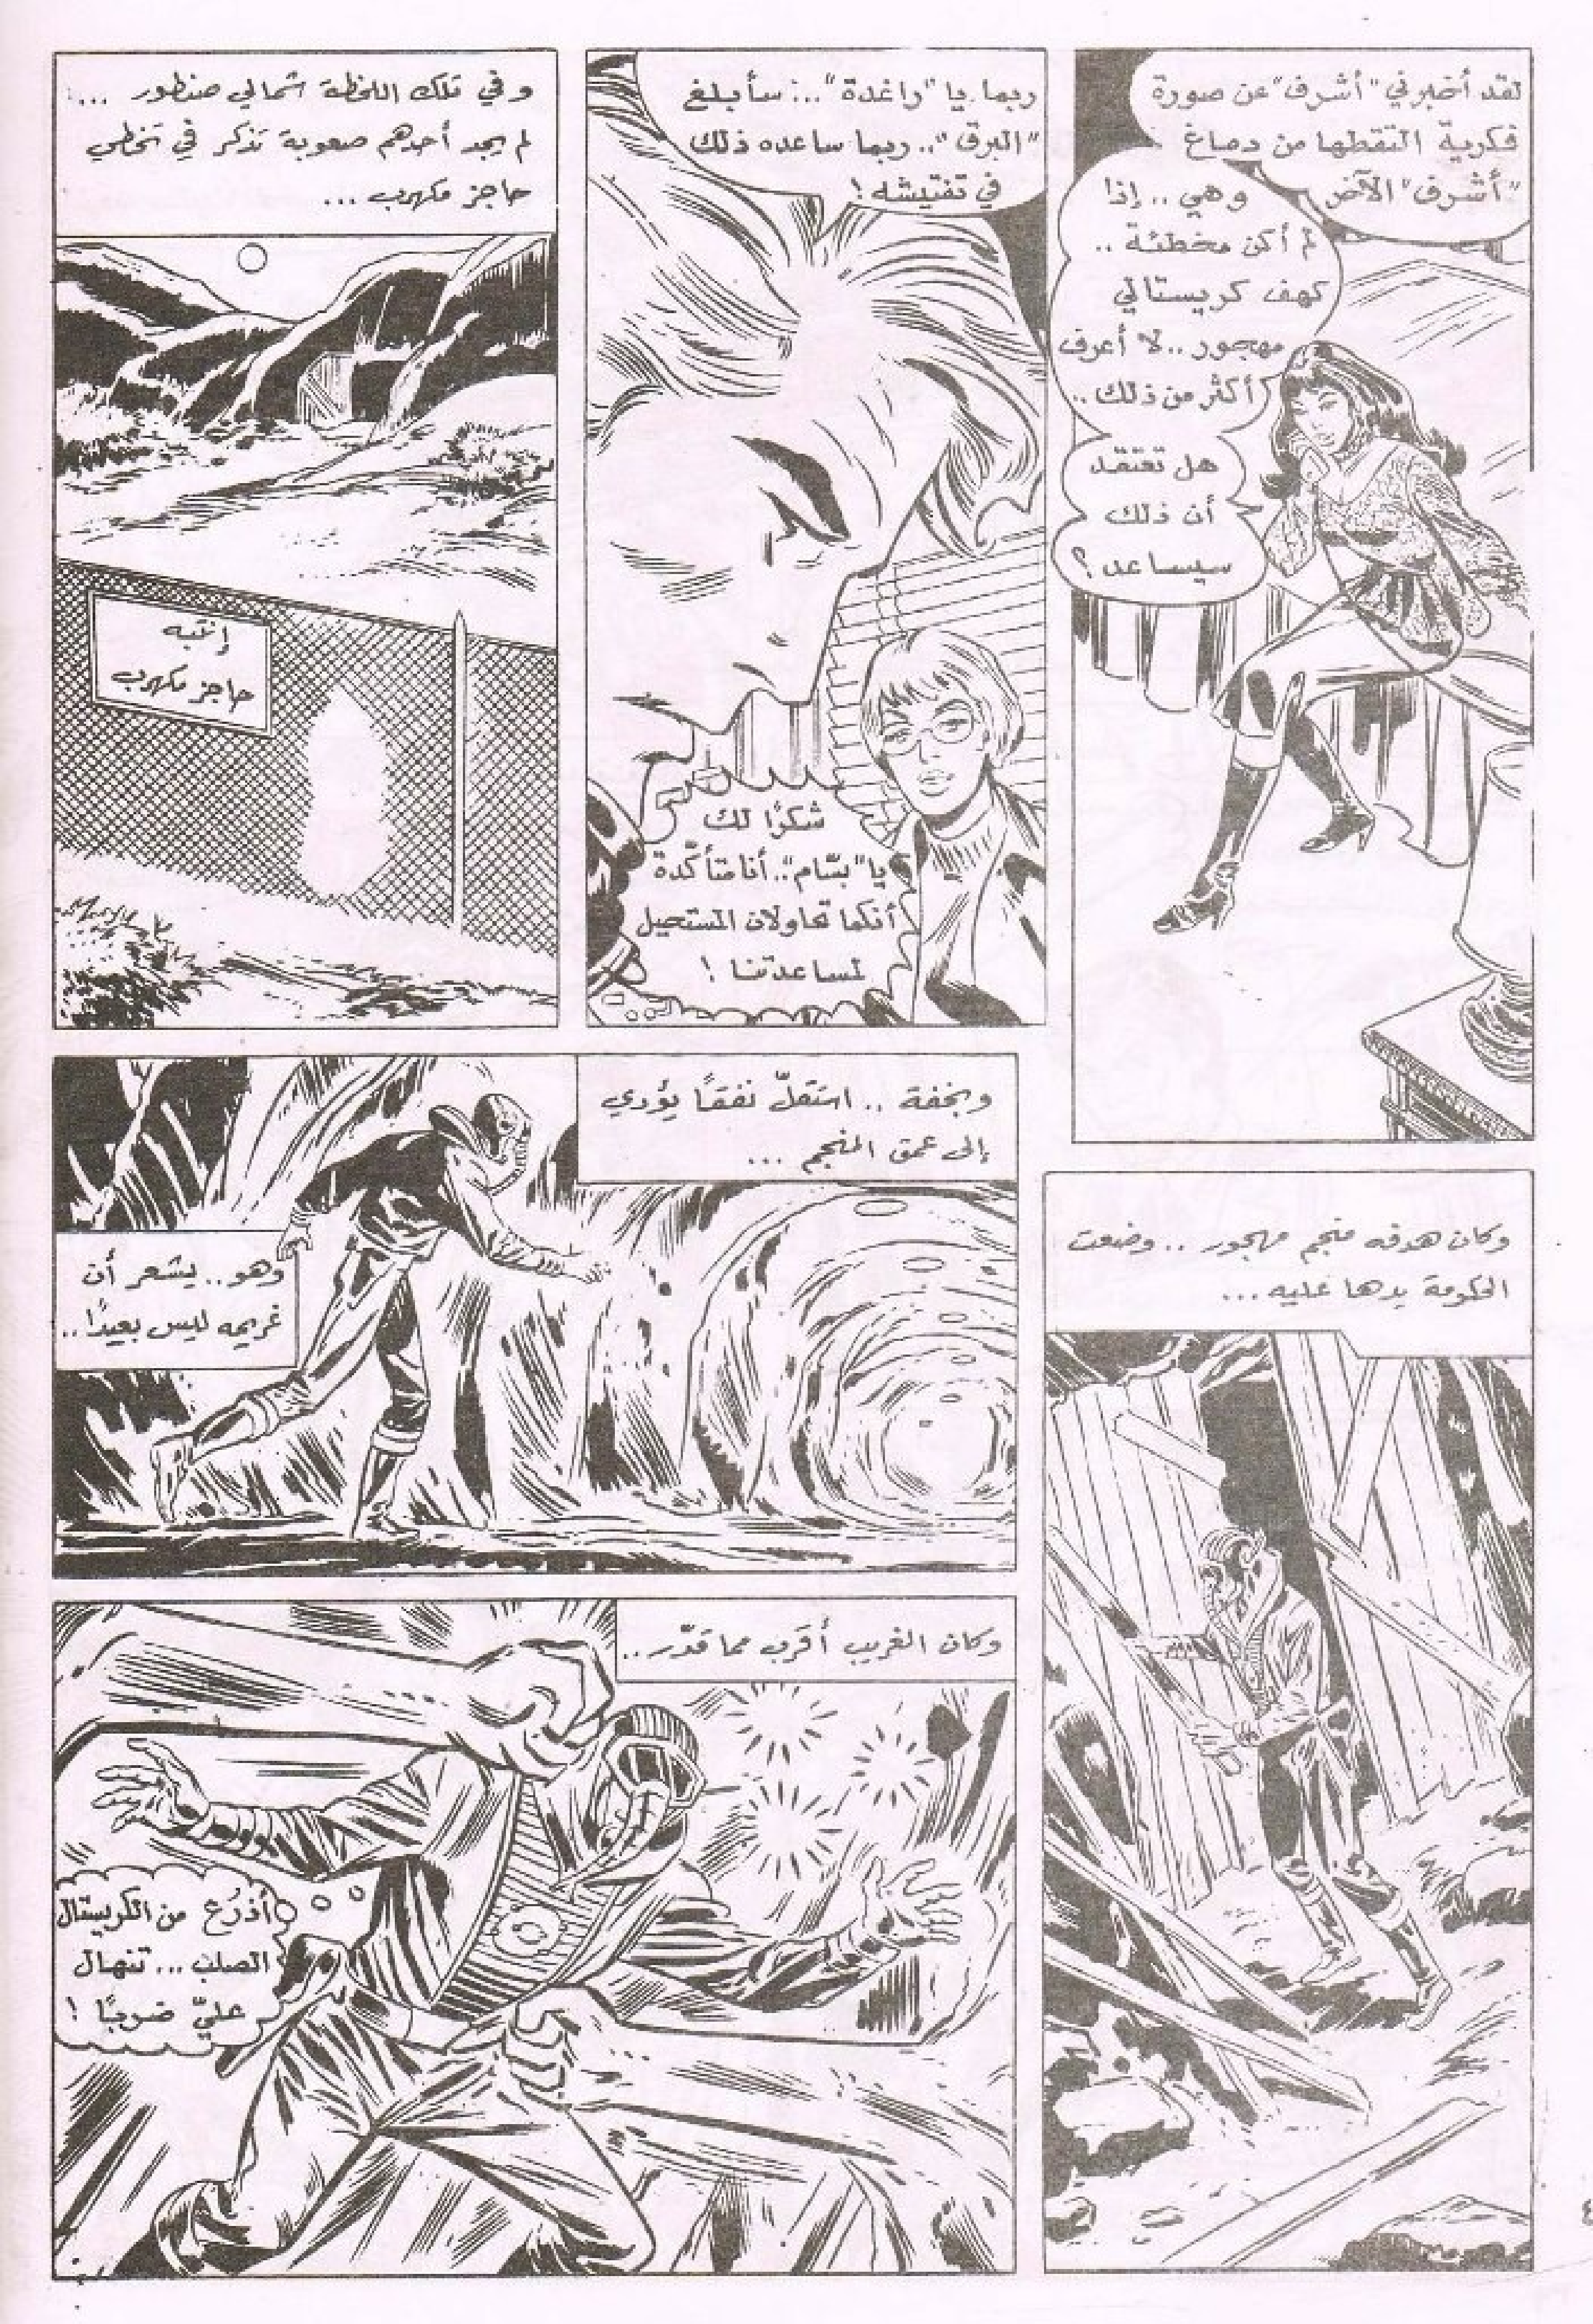 لقد أخبرني "أشرف" عن صورة
فكرية التقطها من دماغ
"أشرف" الآخر
وهي .. إذا
لم أكن مخطئة ..
كهف كريستالي
مهجور .. لا أعرف
أكثر من ذلك ..
هل تعتقد
أن ذلك
سيساعد ؟
ربما يا "راغدة" ... سأبلغ
"البرق" .. ربما ساعده ذلك
في تفتيشه !
شكرًا لك
يا "بسّام" .. أنا متأكّدة
أنكما تحاولان المستحيل
لمساعدتنا !
وفي تلك اللحظة شمالي صنطور ...
لم يجد أحدهم صعوبة تذكر في تخطي
حاجز مكهرب ...
إنتبه
حاجز مكهرب
وكان هدفه منجم مهجور .. وضعت
الحكومة يدها عليه ...
وبخفة .. استقلّ نفقًا يؤدي
إلى عمق المنجم ...
وهو .. يشعر أن
غريمه ليس بعيدًا ..
وكان الغريب أقرب مما قدّر ..
أذرُع من الكريستال
الصلب ... تنهال
عليّ ضربًا !